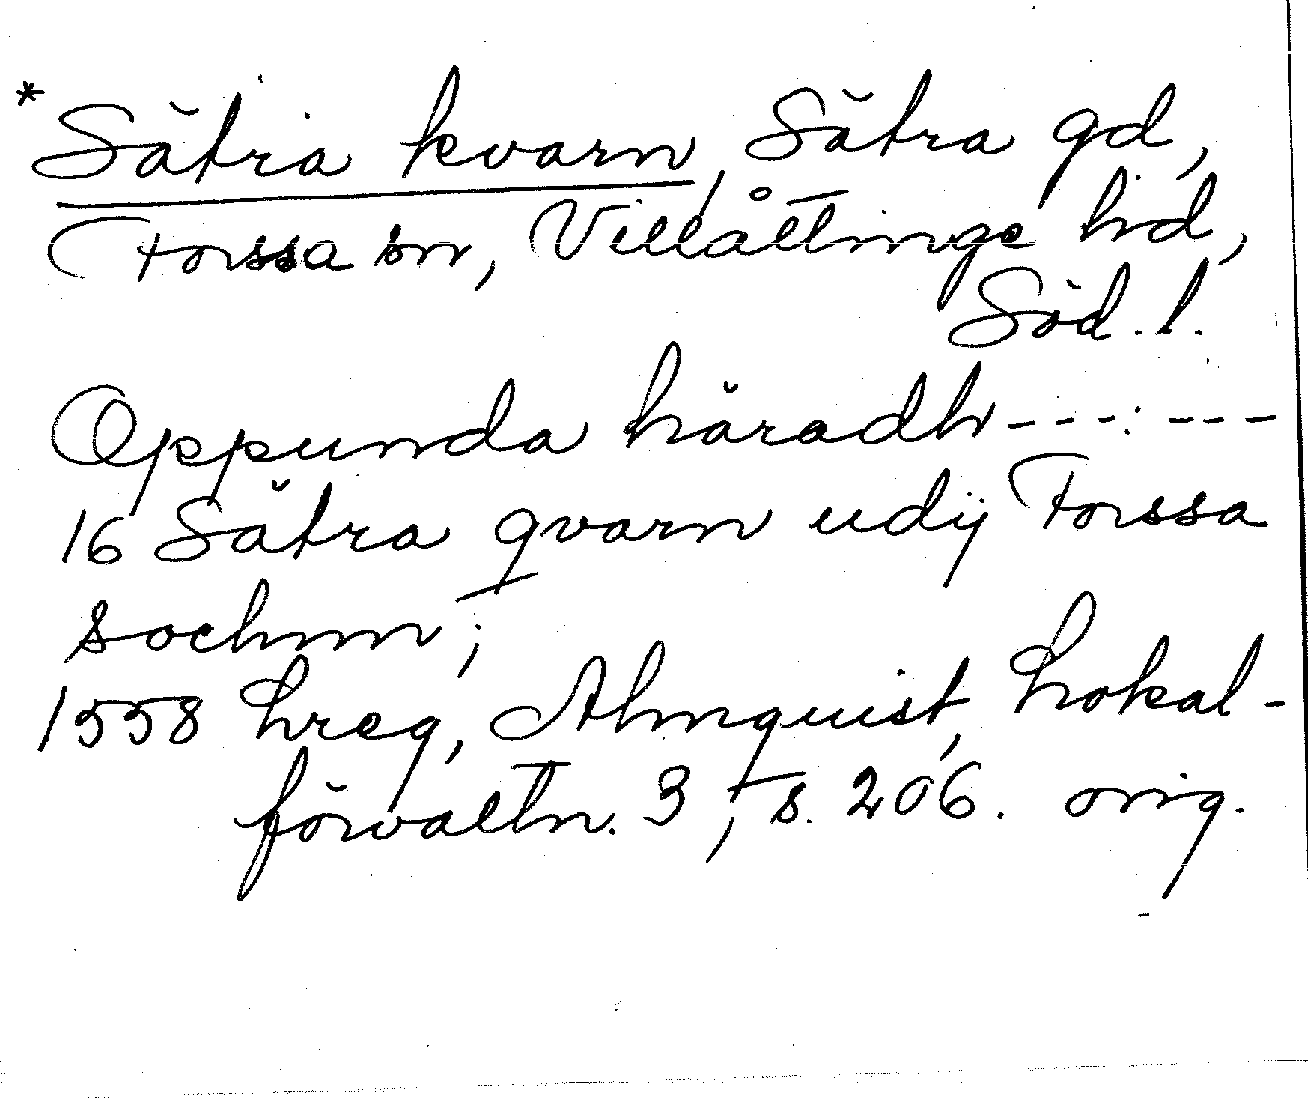 * Sätra kvarn, Sätra gd,
Forssa sn, Villåttinge hd,
Söd. l.
Oppunda häradh ---:---
16 Sätra qvarn udij Forssa
sochnn;
1558 hreg, Almquist, Lokal-
förvaltn. 3, s. 206. orig.